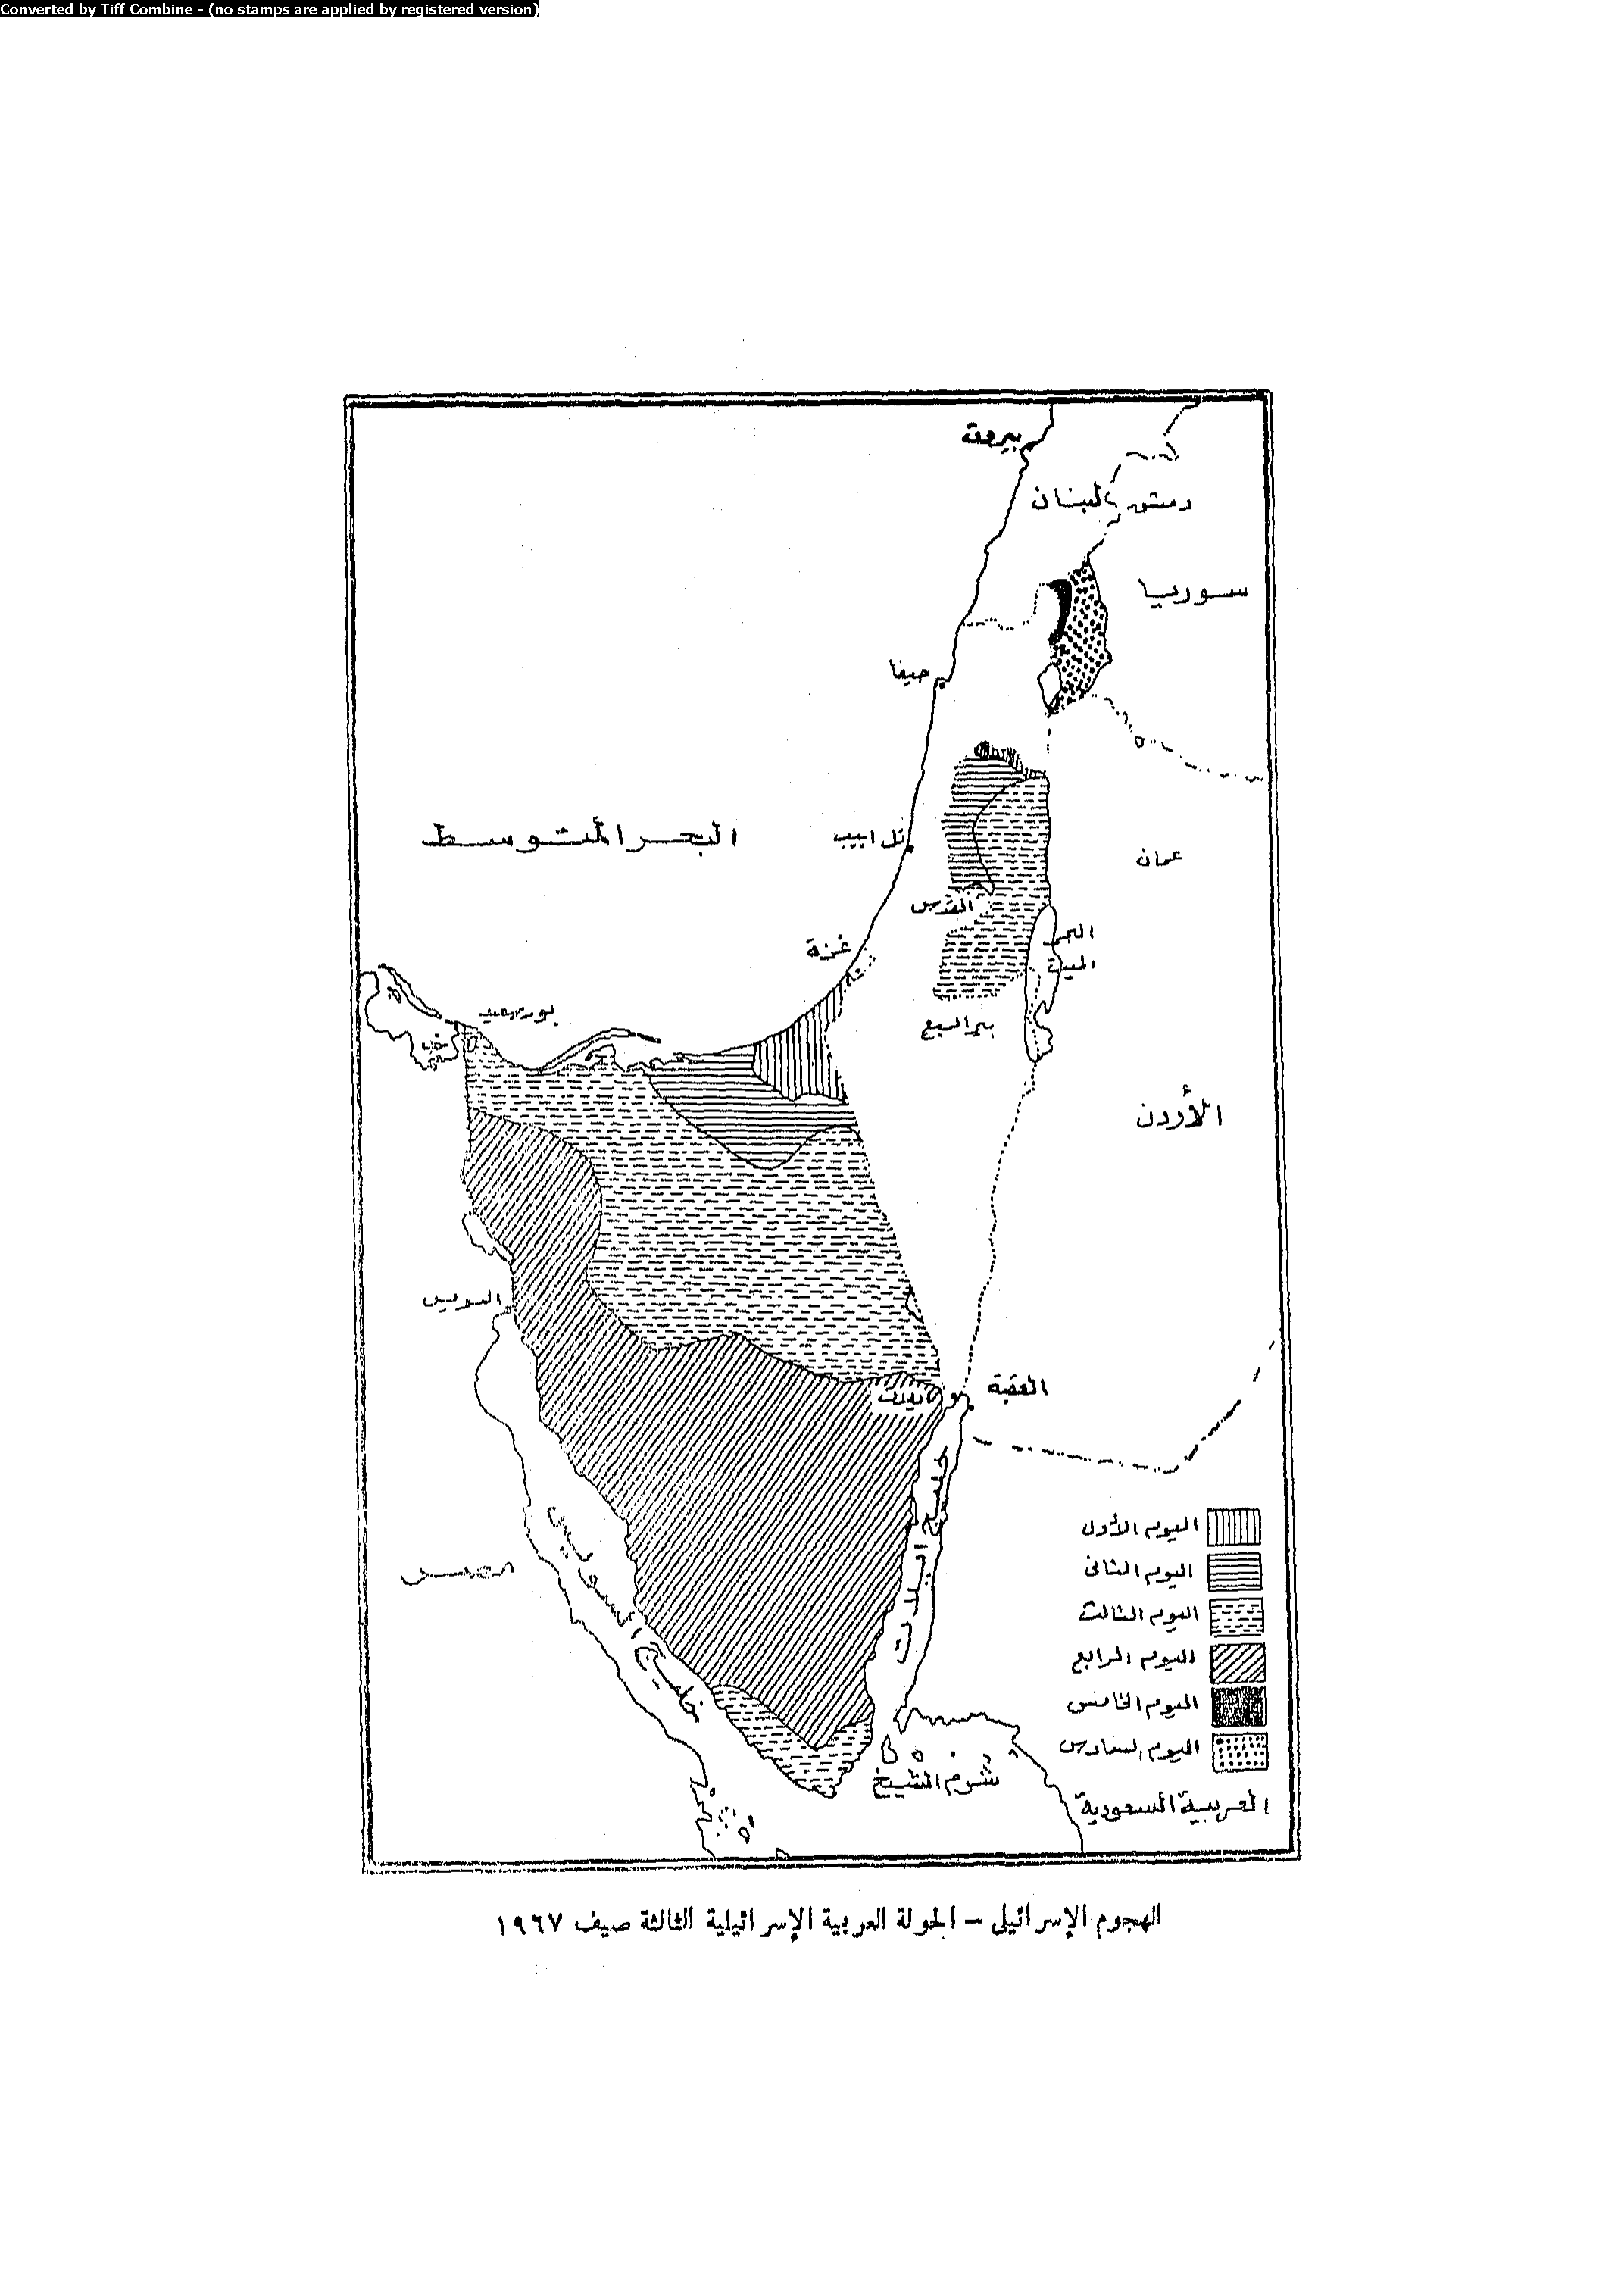 Converted by Tiff Combine - (no stamps are applied by registered version)
بيروت
لبنان
دمشق
سوريا
حيفا
البحر المتوسط
تل ابيب
عمان
القدس
البحر
الميت
غزة
بور سعيد
بير السبع
الأردن
السويس
ايلات
العقبة
خليج ايلات
خليج السويس
مصر
اليوم الأول
اليوم الثانى
اليوم الثالث
اليوم الرابع
اليوم الخامس
اليوم السادس
شرم الشيخ
العربية السعودية
الهجوم الإسرائيلى – الجولة العربية الإسرائيلية الثالثة صيف ١٩٦٧